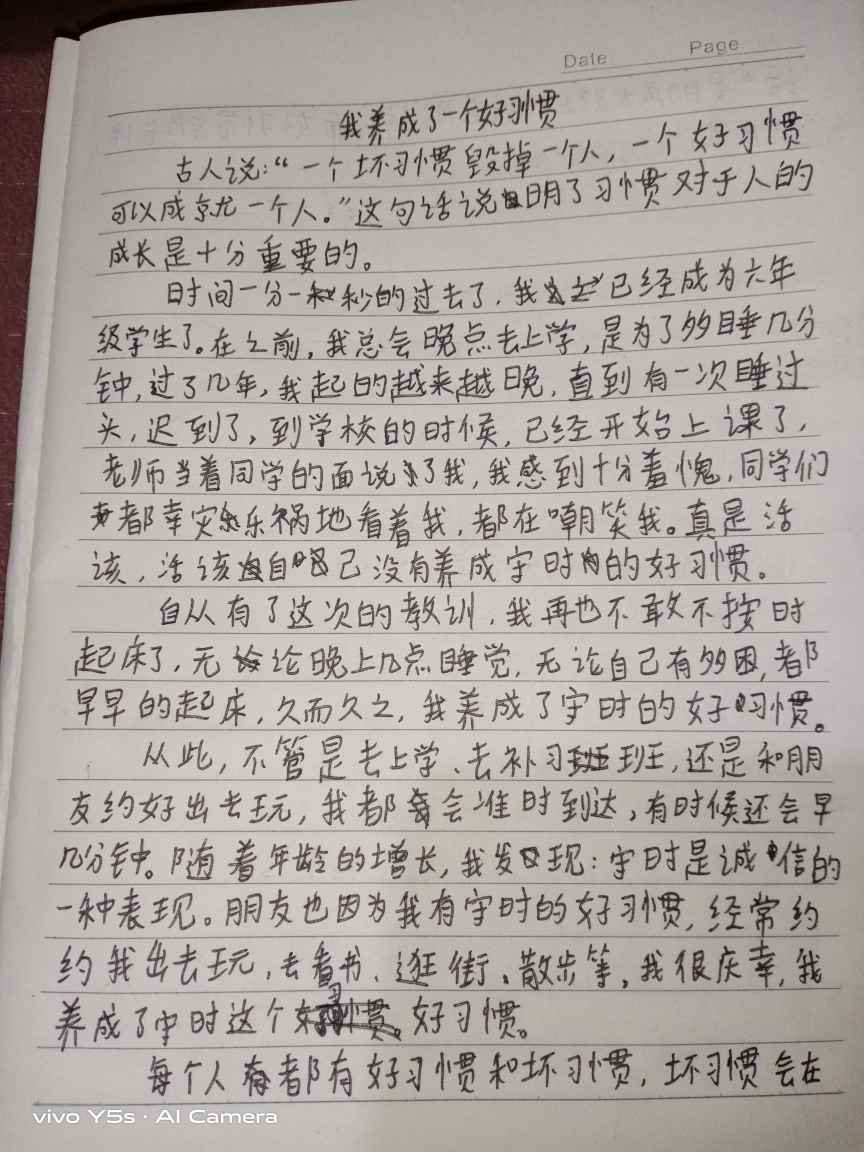 Date Page
我养成了一个好习惯
古人说:“一个坏习惯毁掉一个人,一个好习惯
可以成就一个人。”这句话说明了习惯对于人的
成长是十分重要的。
时间一分一秒的过去了,我已经成为六年
级学生了。在之前,我总会晚点去上学,是为了多睡几分
钟,过了几年,我起的越来越晚,直到有一次睡过
头,迟到了,到学校的时候,已经开始上课了,
老师当着同学的面说了我,我感到十分羞愧,同学们
都幸灾乐祸地看着我,都在嘲笑我。真是活
该,活该自己没有养成守时的好习惯。
自从有了这次的教训,我再也不敢不按时
起床了,无论晚上几点睡觉,无论自己有多困,都
早早的起床,久而久之,我养成了守时的好习惯。
从此,不管是去上学、去补习班,还是和朋
友约好出去玩,我都会准时到达,有时候还会早
几分钟。随着年龄的增长,我发现:守时是诚信的
一种表现。朋友也因为我有守时的好习惯,经常约
约我出去玩,去看书、逛街、散步等,我很庆幸,我
养成了守时这个好习惯。
每个人都有好习惯和坏习惯,坏习惯会在
vivo Y5s · AI Camera